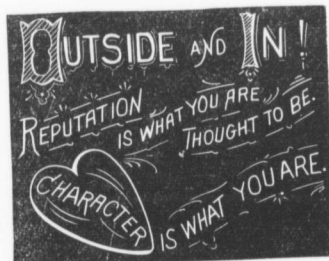 OUTSIDE AND IN!
REPUTATION
IS WHAT YOU ARE
THOUGHT TO BE.
CHARACTER
IS WHAT YOU ARE.